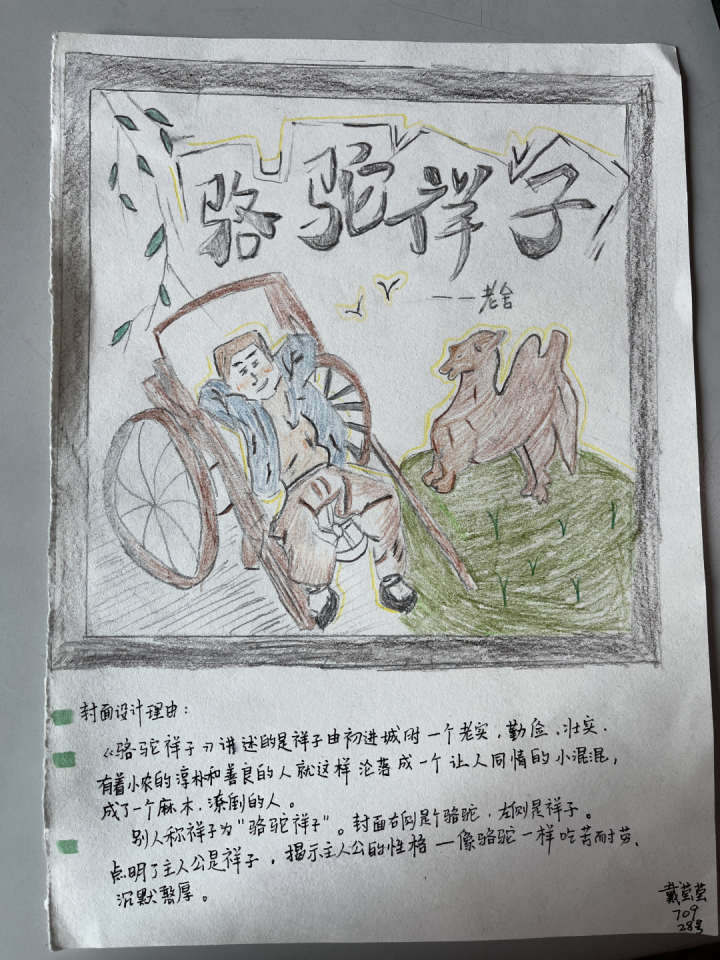 骆驼祥子
——老舍
封面设计理由：
《骆驼祥子》讲述的是祥子由初进城时一个老实、勤俭、壮实、
有着小农的淳朴和善良的人就这样沦落成一个让人同情的小混混，
成了一个麻木、潦倒的人。
别人称祥子为“骆驼祥子”。封面右侧是个骆驼，左侧是祥子。
点明了主人公是祥子，揭示主人公的性格—像骆驼一样吃苦耐劳、
沉默憨厚。
戴莹莹
709
28号